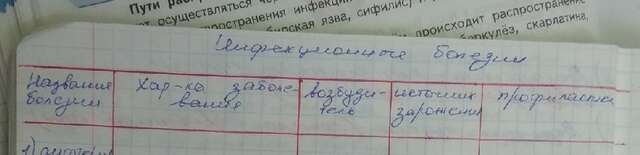 Пути рас
от осуществляться чер
распространения инфекци
бирская язва, сифилис)
происходит распространение
беркулёз, скарлатина,
Инфекционные болезни
Название болезни
Хар-ка заболевания
возбудитель
источник заражения
профилактика
1)